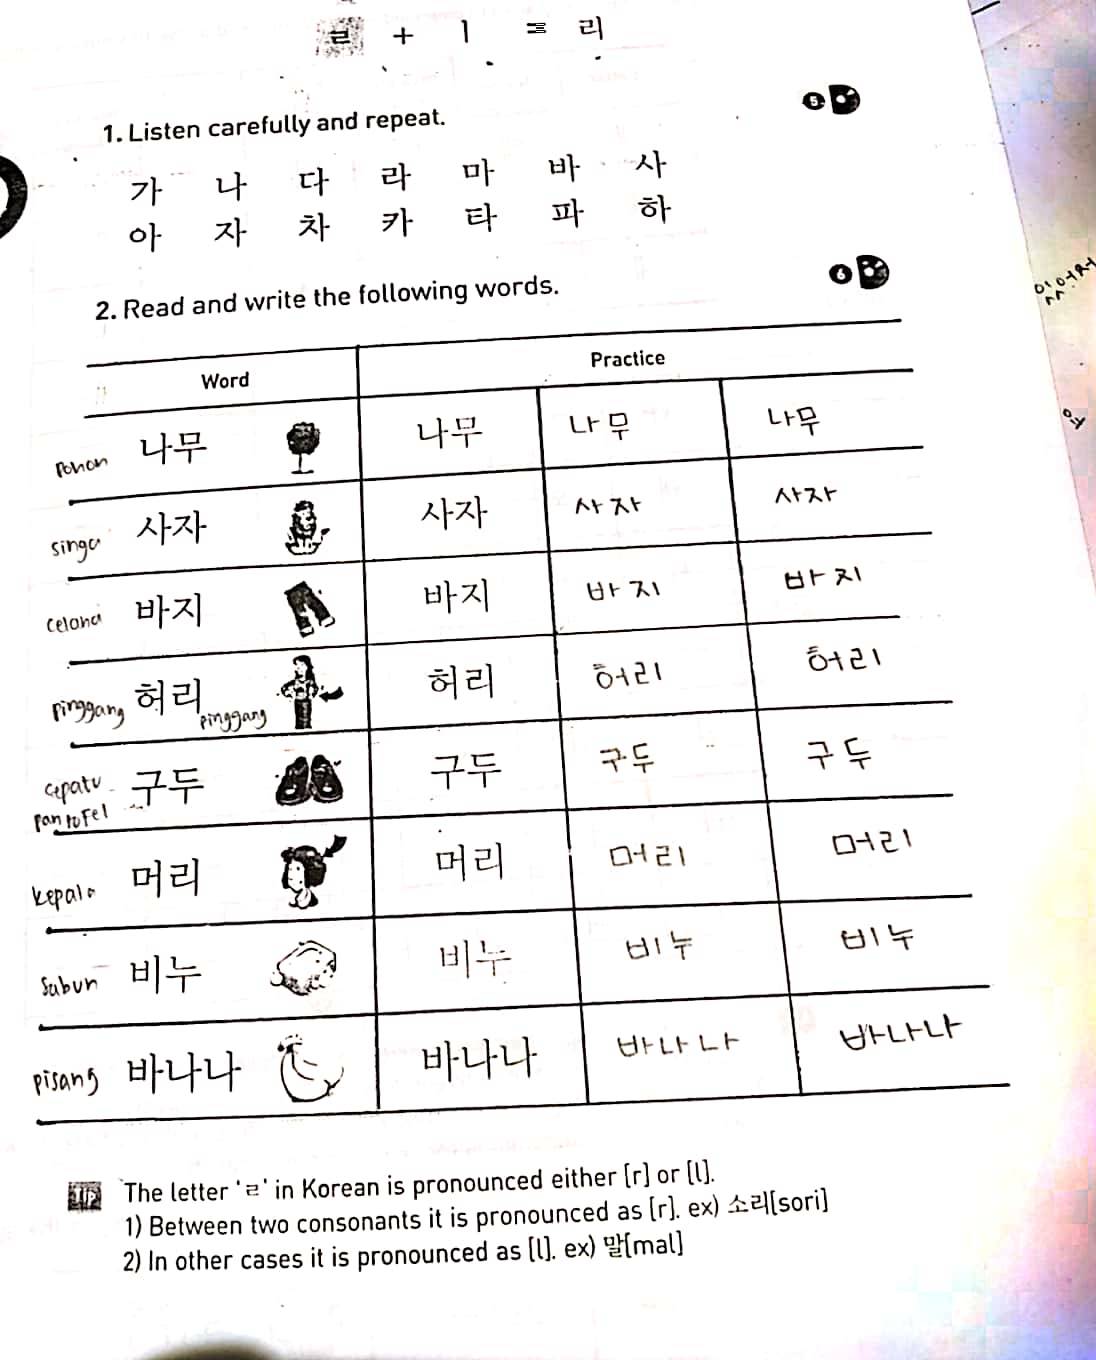 ㄹ + ㅣ = 리
5
1. Listen carefully and repeat.
가 나 다 라 마 바 사
아 자 차 카 타 파 하
6
2. Read and write the following words.
Word Practice
pohon 나무 나무 나무 나무
singa 사자 사자 사자 사자
celana 바지 바지 바지 바지
pinggang 허리 pinggang 허리 허리 허리
sepatu pantofel 구두 구두 구두 구두
kepala 머리 머리 머리 머리
sabun 비누 비누 비누 비누
pisang 바나나 바나나 바나나 바나나
Tip The letter 'ㄹ' in Korean is pronounced either [r] or [l].
1) Between two consonants it is pronounced as [r]. ex) 소리[sori]
2) In other cases it is pronounced as [l]. ex) 말[mal]